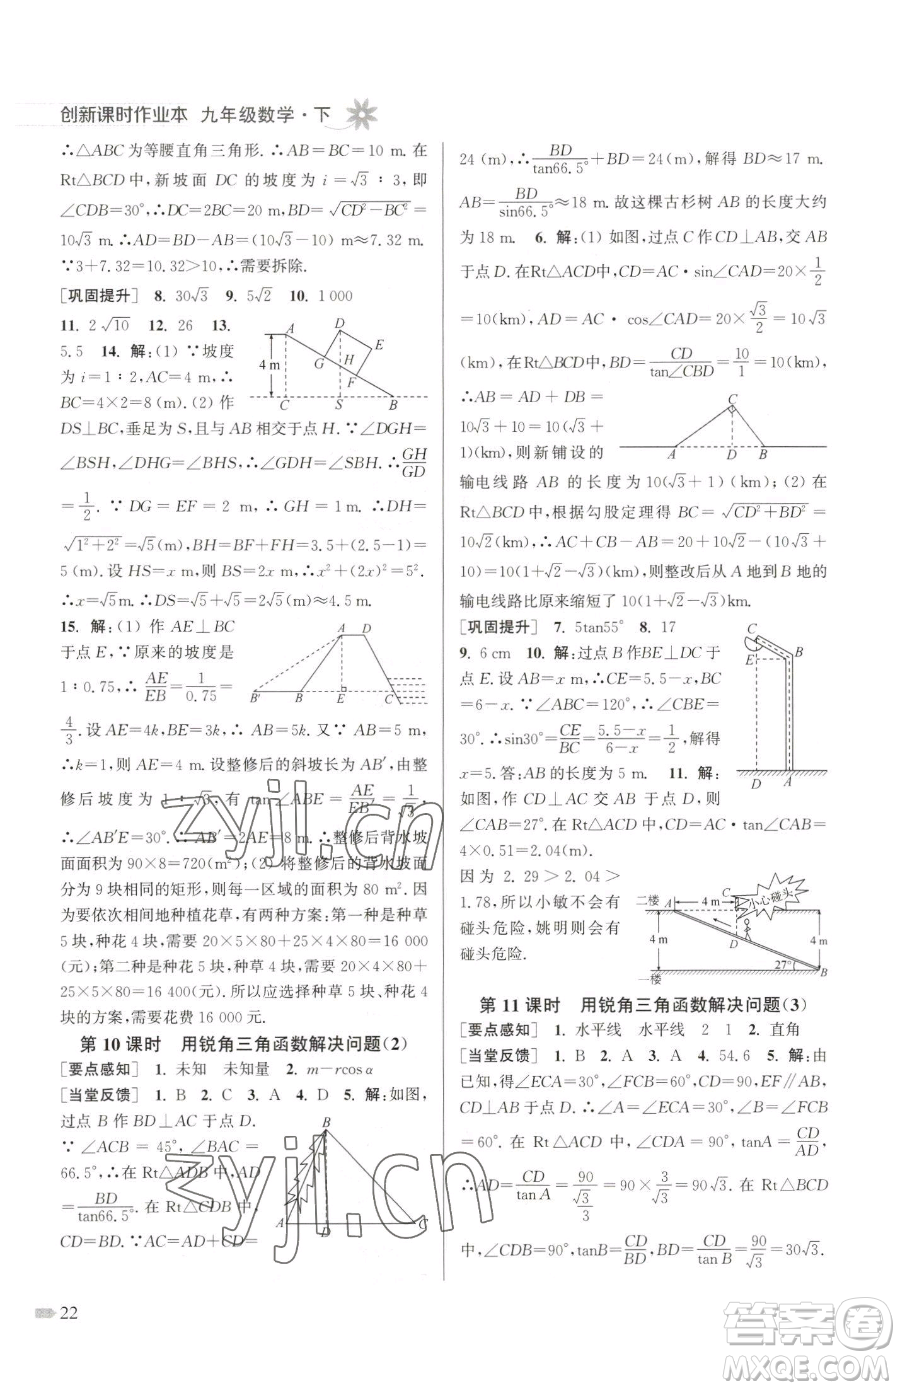 创新课时作业本 九年级数学·下
∴△ABC为等腰直角三角形.∴AB=BC=10 m.在
Rt△BCD中,新坡面 DC 的坡度为 i=√3∶3,即
∠CDB=30°,∴DC=2BC=20 m,BD=√(CD²-BC²)=
10√3 m.∴AD=BD-AB=(10√3-10) m≈7.32 m.
∵3+7.32=10.32>10,∴需要拆除.
[巩固提升] 8. 30√3 9. 5√2 10. 1 000
11. 2√10 12. 26 13.
5.5 14. 解:(1)∵坡度
为 i=1∶2,AC=4 m,∴
BC=4×2=8(m).(2)作
DS⊥BC,垂足为S,且与AB交于点H.∵∠DGH=
∠BSH,∠DHG=∠BHS,∴∠GDH=∠SBH.∴GH/GD
=1/2.∵DG=EF=2 m,∴GH=1 m.∴DH=
√(1²+2²)=√5(m),BH=BF+FH=3.5+(2.5-1)=
5(m).设HS=x m,则BS=2x m.∴x²+(2x)²=5².
∴x=√5m.∴DS=√5+√5=2√5(m)≈4.5 m.
15. 解:(1)作 AE⊥BC
于点E;∵原来的坡度为
1∶0.75,∴AE/EB=1/0.75=
4/3.设AE=4k,BE=3k,∴AB=5k.又∵AB=5 m,
∴k=1,则AE=4 m.设整修后的斜坡长为AB′,由整
修后坡度为1∶√3.有tan∠AB′E=AE/EB′=1/√3,
∴∠AB′E=30°.∴AB′=2AE=8 m.∴整修后背水坡
面面积为90×8=720(m²);(2)将整修后的背水坡
面分为9块相同的矩形,则每一区域的面积为80 m².
依次相间地种植花草,有两种方案:第一种是种草
5块,种花4块,需要20×5×80+25×4×80=16 000
(元);第二种是种花5块,种草4块,需要20×4×80+
25×5×80=16 400(元).所以应选择种草5块、种花4
块的方案,需要花费16 000元.
第10课时 用锐角三角函数解决问题(2)
[要点感知] 1. 未知 未知量 2. m-rcosα
[当堂反馈] 1. B 2. C 3. A 4. D 5. 解:如图,
过点B作BD⊥AC于点D.
∵∠ACB=45°,∠BAC=
66.5°,∴在Rt△ADB中,AD
=BD/tan66.5°.在Rt△CDB中,
CD=BD.∵AC=AD+CD=
A B C D E F G H S
4 m
24(m),∴BD/tan66.5°+BD=24(m).BD≈17 m.
AB=BD/sin66.5°≈18 m.故这棵古杉树AB的长度大约
为18 m. 6. 解:(1)如图,过点C作CD⊥AB,交AB
于点D.在Rt△ACD中,CD=AC·sin∠CAD=20×1/2
=10(km),AD=AC·cos∠CAD=20×√3/2=10√3
(km),在Rt△BCD中,BD=CD/tan∠CBD=10/1=10(km).
∴AB=AD+DB=
10√3+10=10(√3+
1)(km).则新铺设的
输电线路AB的长度为10(√3+1)(km);(2)在
Rt△BCD中,根据勾股定理得BC=√(CD²+BD²)=
输电线路比原来缩短了10(1+√2-√3)km.
[巩固提升] 7. 5tan55° 8. 17
9. 6 cm 10. 解:过点B作BE⊥DC于
点E.设AB=x m,∴CE=5.5-x,BC
=6-x.∵∠ABC=120°,∴∠CBE=
30°.∴sin30°=CE/BC=(5.5-x)/(6-x)=1/2,解得
x=5.答:AB的长度为5 m. 11. 解:
如图,作CD⊥AC交AB于点D,则
∠CAB=27°.在Rt△ACD中,CD=AC·tan∠CAB=
4×0.51=2.04(m).
因为2.29>2.04>
1.78,所以小敏不会有
碰头危险,姚明则会有
碰头危险.
二楼 一楼 4 m 小心碰头 27°
第11课时 用锐角三角函数解决问题(3)
[要点感知] 1. 水平线 水平线 2 1 2. 直角
[当堂反馈] 1. B 2. B 3. A 4. 54.6 5. 解:由
已知,得∠ECA=30°,∠FCB=60°,CD=90,EF∥AB,
CD⊥AB于点D.∴∠A=∠ECA=30°,∠B=∠FCB
=60°.在Rt△ACD中,∠CDA=90°,tanA=CD/AD,
∴AD=CD/tanA=90/(√3/3)=90×3/√3=90√3.在Rt△BCD
中,∠CDB=90°,tanB=CD/BD,BD=CD/tanB=90/√3=30√3.
22
zyjl.cn
zyjl.cn
答案圈
MXQE.COM